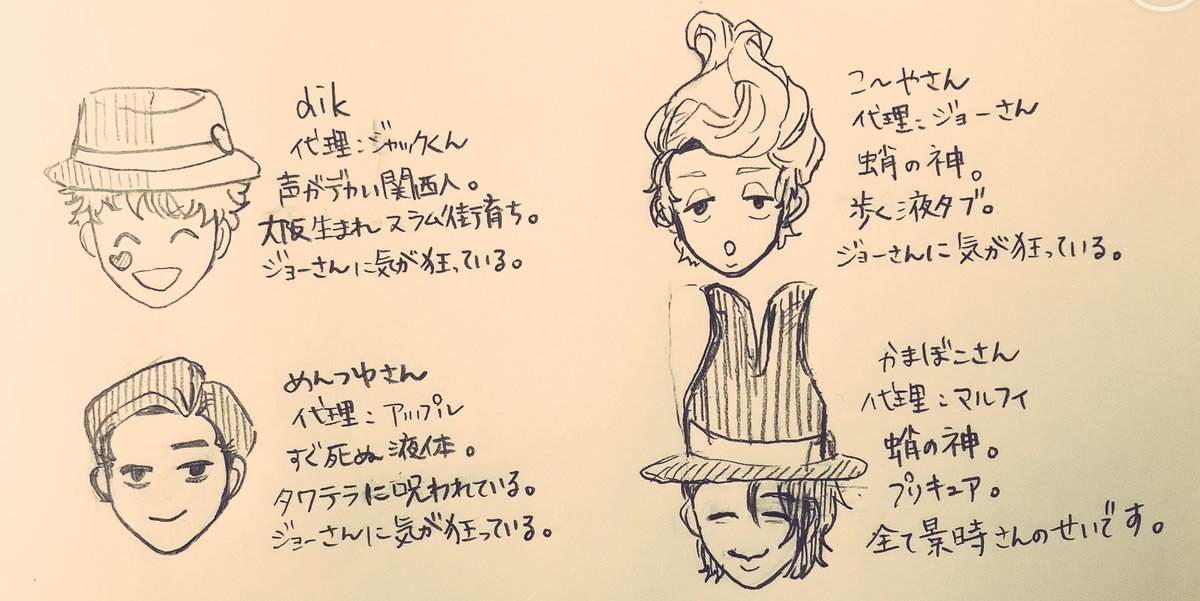 dik
代理:ジャックくん
声がデカい関西人。
大阪生まれスラム街育ち。
ジョーさんに気が狂っている。
こ〜やさん
代理:ジョーさん
蛸の神。
歩く液タブ。
ジョーさんに気が狂っている。
めんつゆさん
代理:アップル
すぐ死ぬ液体。
タワテラに呪われている。
ジョーさんに気が狂っている。
かまぼこさん
代理:マルフィ
蛸の神。
プリキュア。
全て景時さんのせいです。